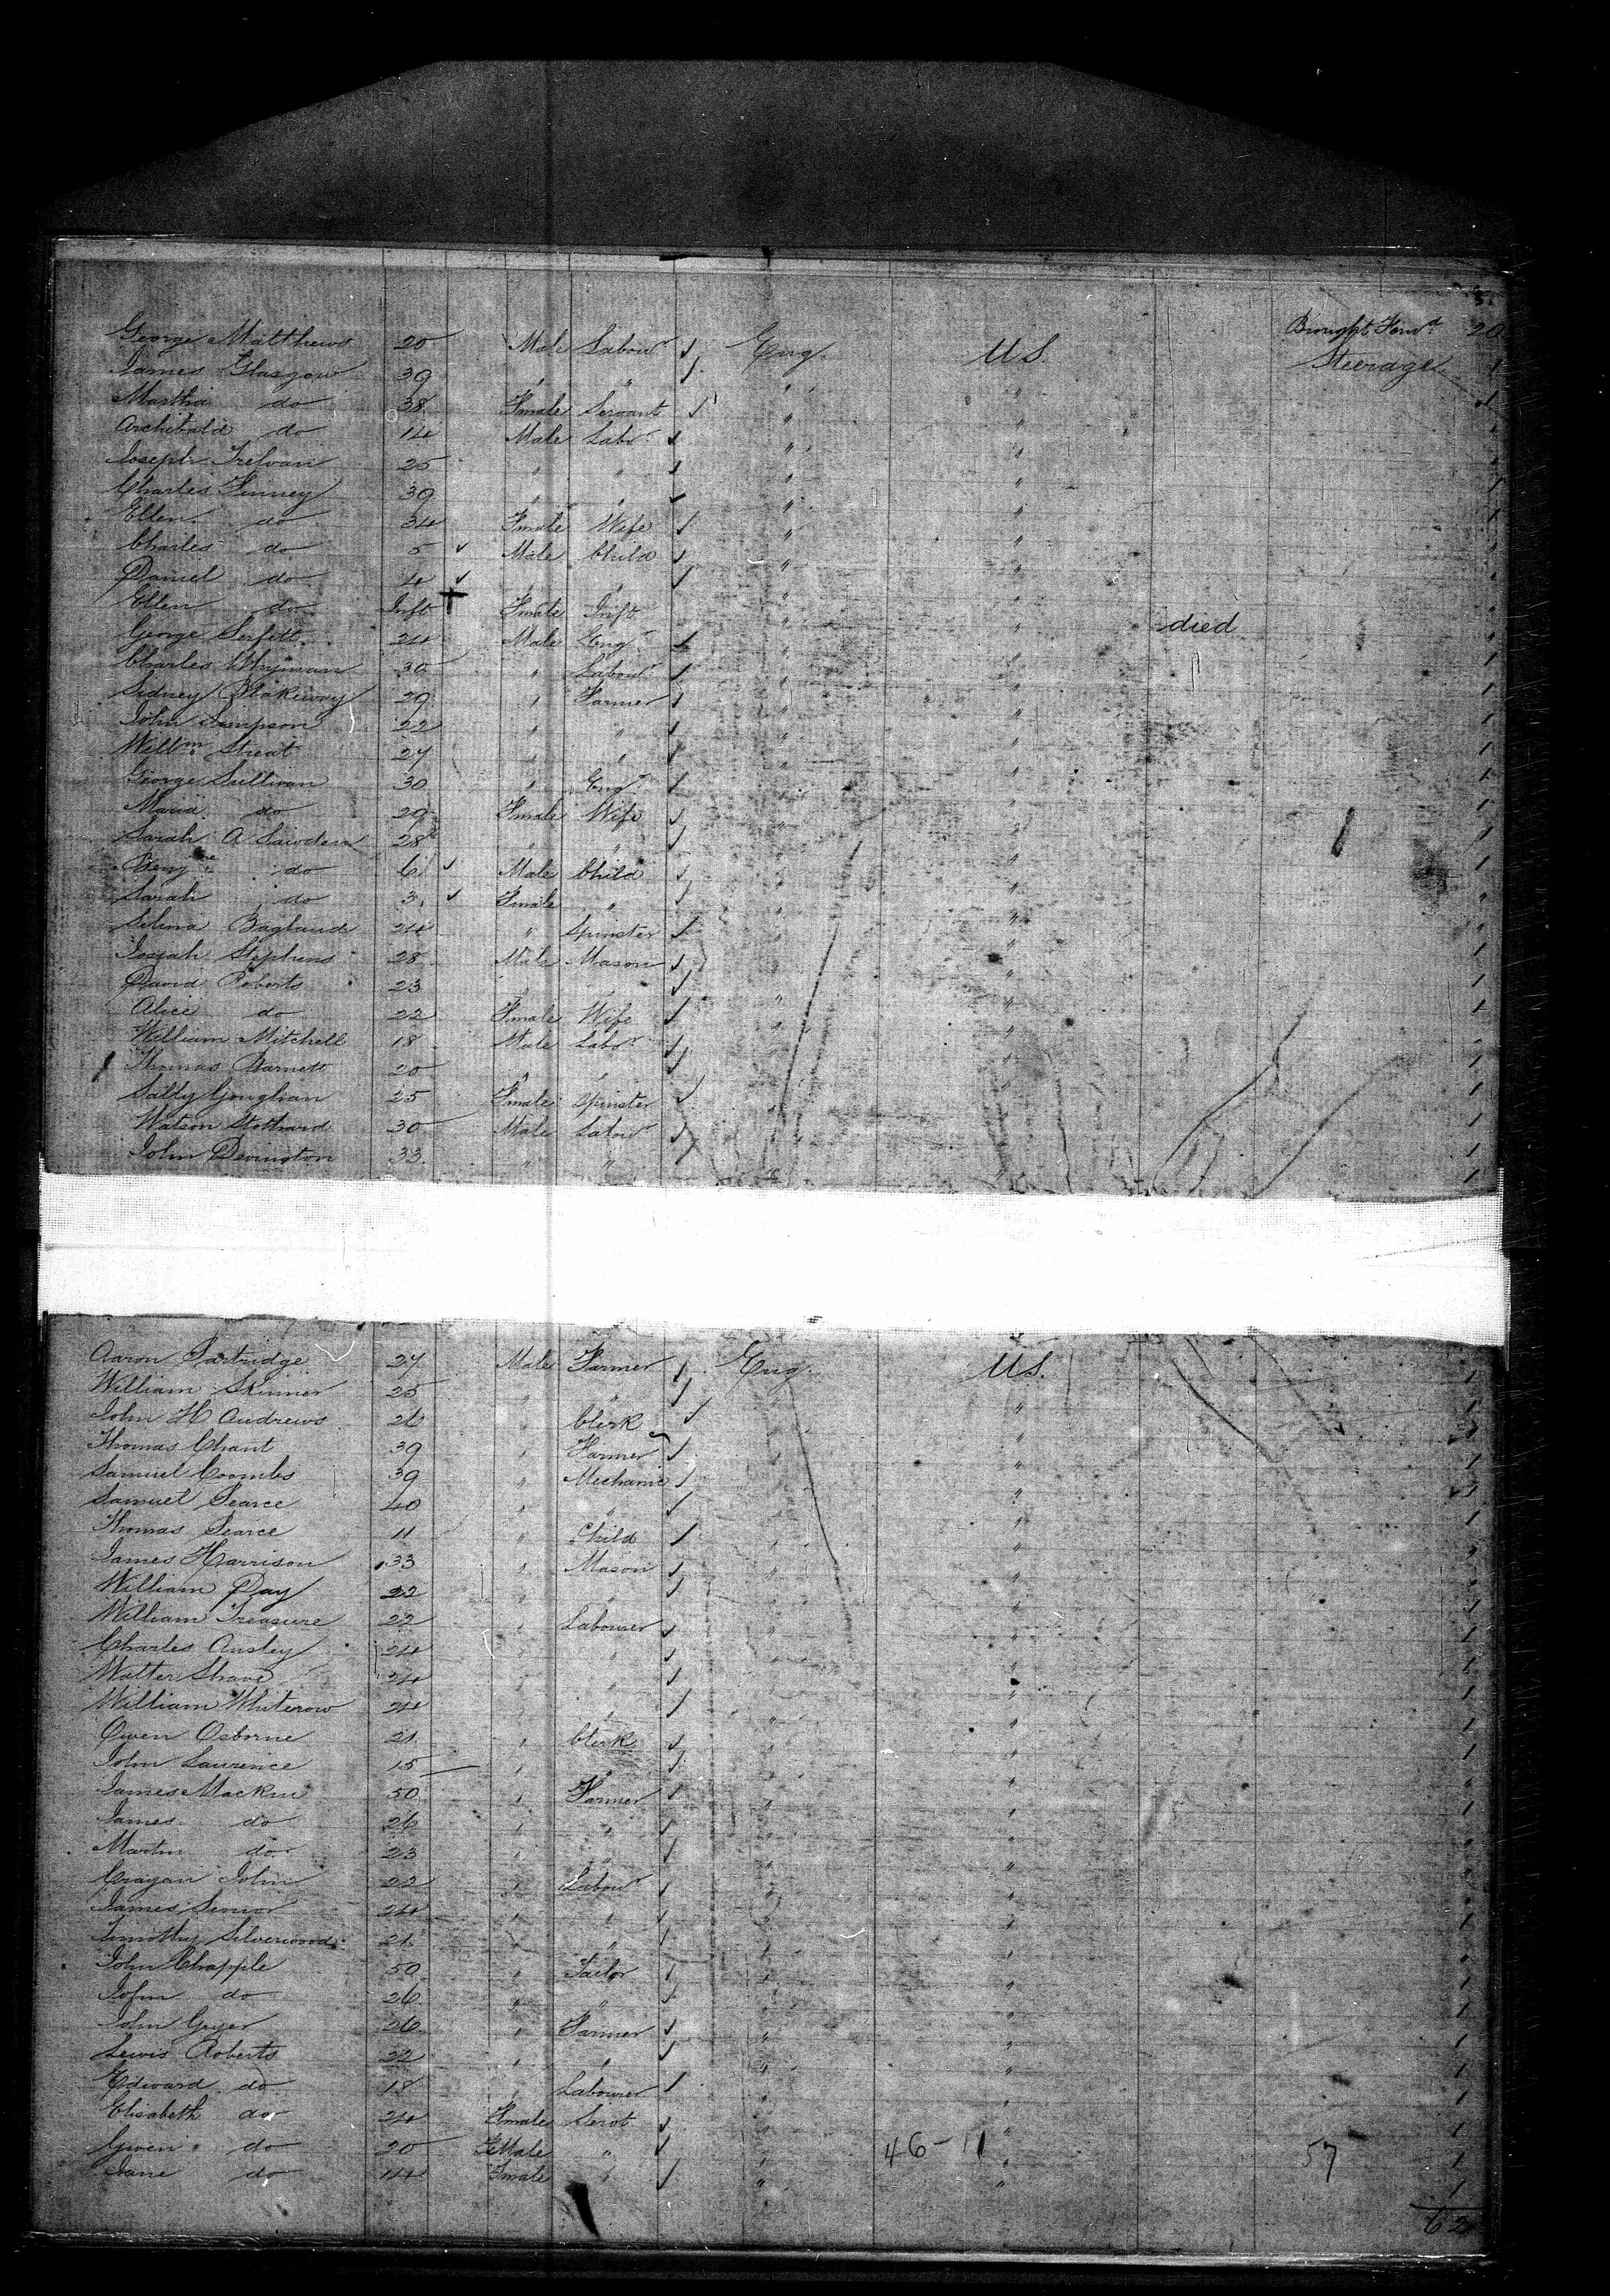 Brought Forwd. 20
George Matthews 20 Male Labour Eng. U.S. Steerage 1
James Glasgow 39 " " " "
Martha do 38 Fmale Servant " "
Archibald do 14 Male Labr. " "
Joseph 25 " " " "
Charles Finney 39 " " " "
Ellen do 34 Fmale Wife " "
Charles do 5 Male Child " "
Daniel do 4 " " " "
Ellen do Inft Fmale Inft " " died
George 24 Male Engr " "
Charles 30 " Labour " "
Sidney Blakeway 29 " Farmer " "
John Simpson 22 " " " "
Willm. Streat 27 " " " "
George Sullivan 30 " Engr " "
Maria do 29 Fmale Wife " "
Sarah A Sawden 28 " " " "
Benj do 6 Male Child " "
Sarah do 3 Fmale " " "
Selina 24 " Spinster " "
Josiah Stephens 28 Male Mason " "
David Roberts 23 " " " "
Alice do 22 Fmale Wife " "
William Mitchell 18 Male Labor " "
Thomas Barnett 20 " " " "
Sally Goughan 25 Fmale Spinster " "
Watson Stothard 30 Male Labour " "
John Devington 33 " " " "
Aaron Partridge 27 Male Farmer Eng. U.S. 1
William Skinner 25 " " " " 1
John H Andrews 26 " Clerk " "
Thomas Chant 39 " Farmer " "
Samuel Coombs 39 " Mechanic " "
Samuel Pearce 40 " " " "
Thomas Pearce 11 " Child " "
James Harrison 33 " Mason " "
William Day 22 " " " "
William Treasure 22 " Labourer " "
Charles Ansley 24 " " " "
Walter Shave 24 " " " "
William Whiterow 24 " " " "
Owen Osborne 21 " Clerk " "
John Laurence 15 " " " "
James Mackin 50 " Farmer " "
James do 26 " " " "
Martin do 23 " " " "
John 22 " Labour " "
James Senior 24 " " " "
Timothy Silverwood 21 " " " "
John Chapple 50 " Tailor " "
John do 26 " " " "
John Geyer 26 " Farmer " "
Lewis Roberts 22 " " " "
Edward do 18 " Labourer " "
Elisabeth do 24 Fmale Servt " "
Gwen do 20 FeMale " " 46-11 " 57 1
Jane do 14 Fmale " " " 1
62